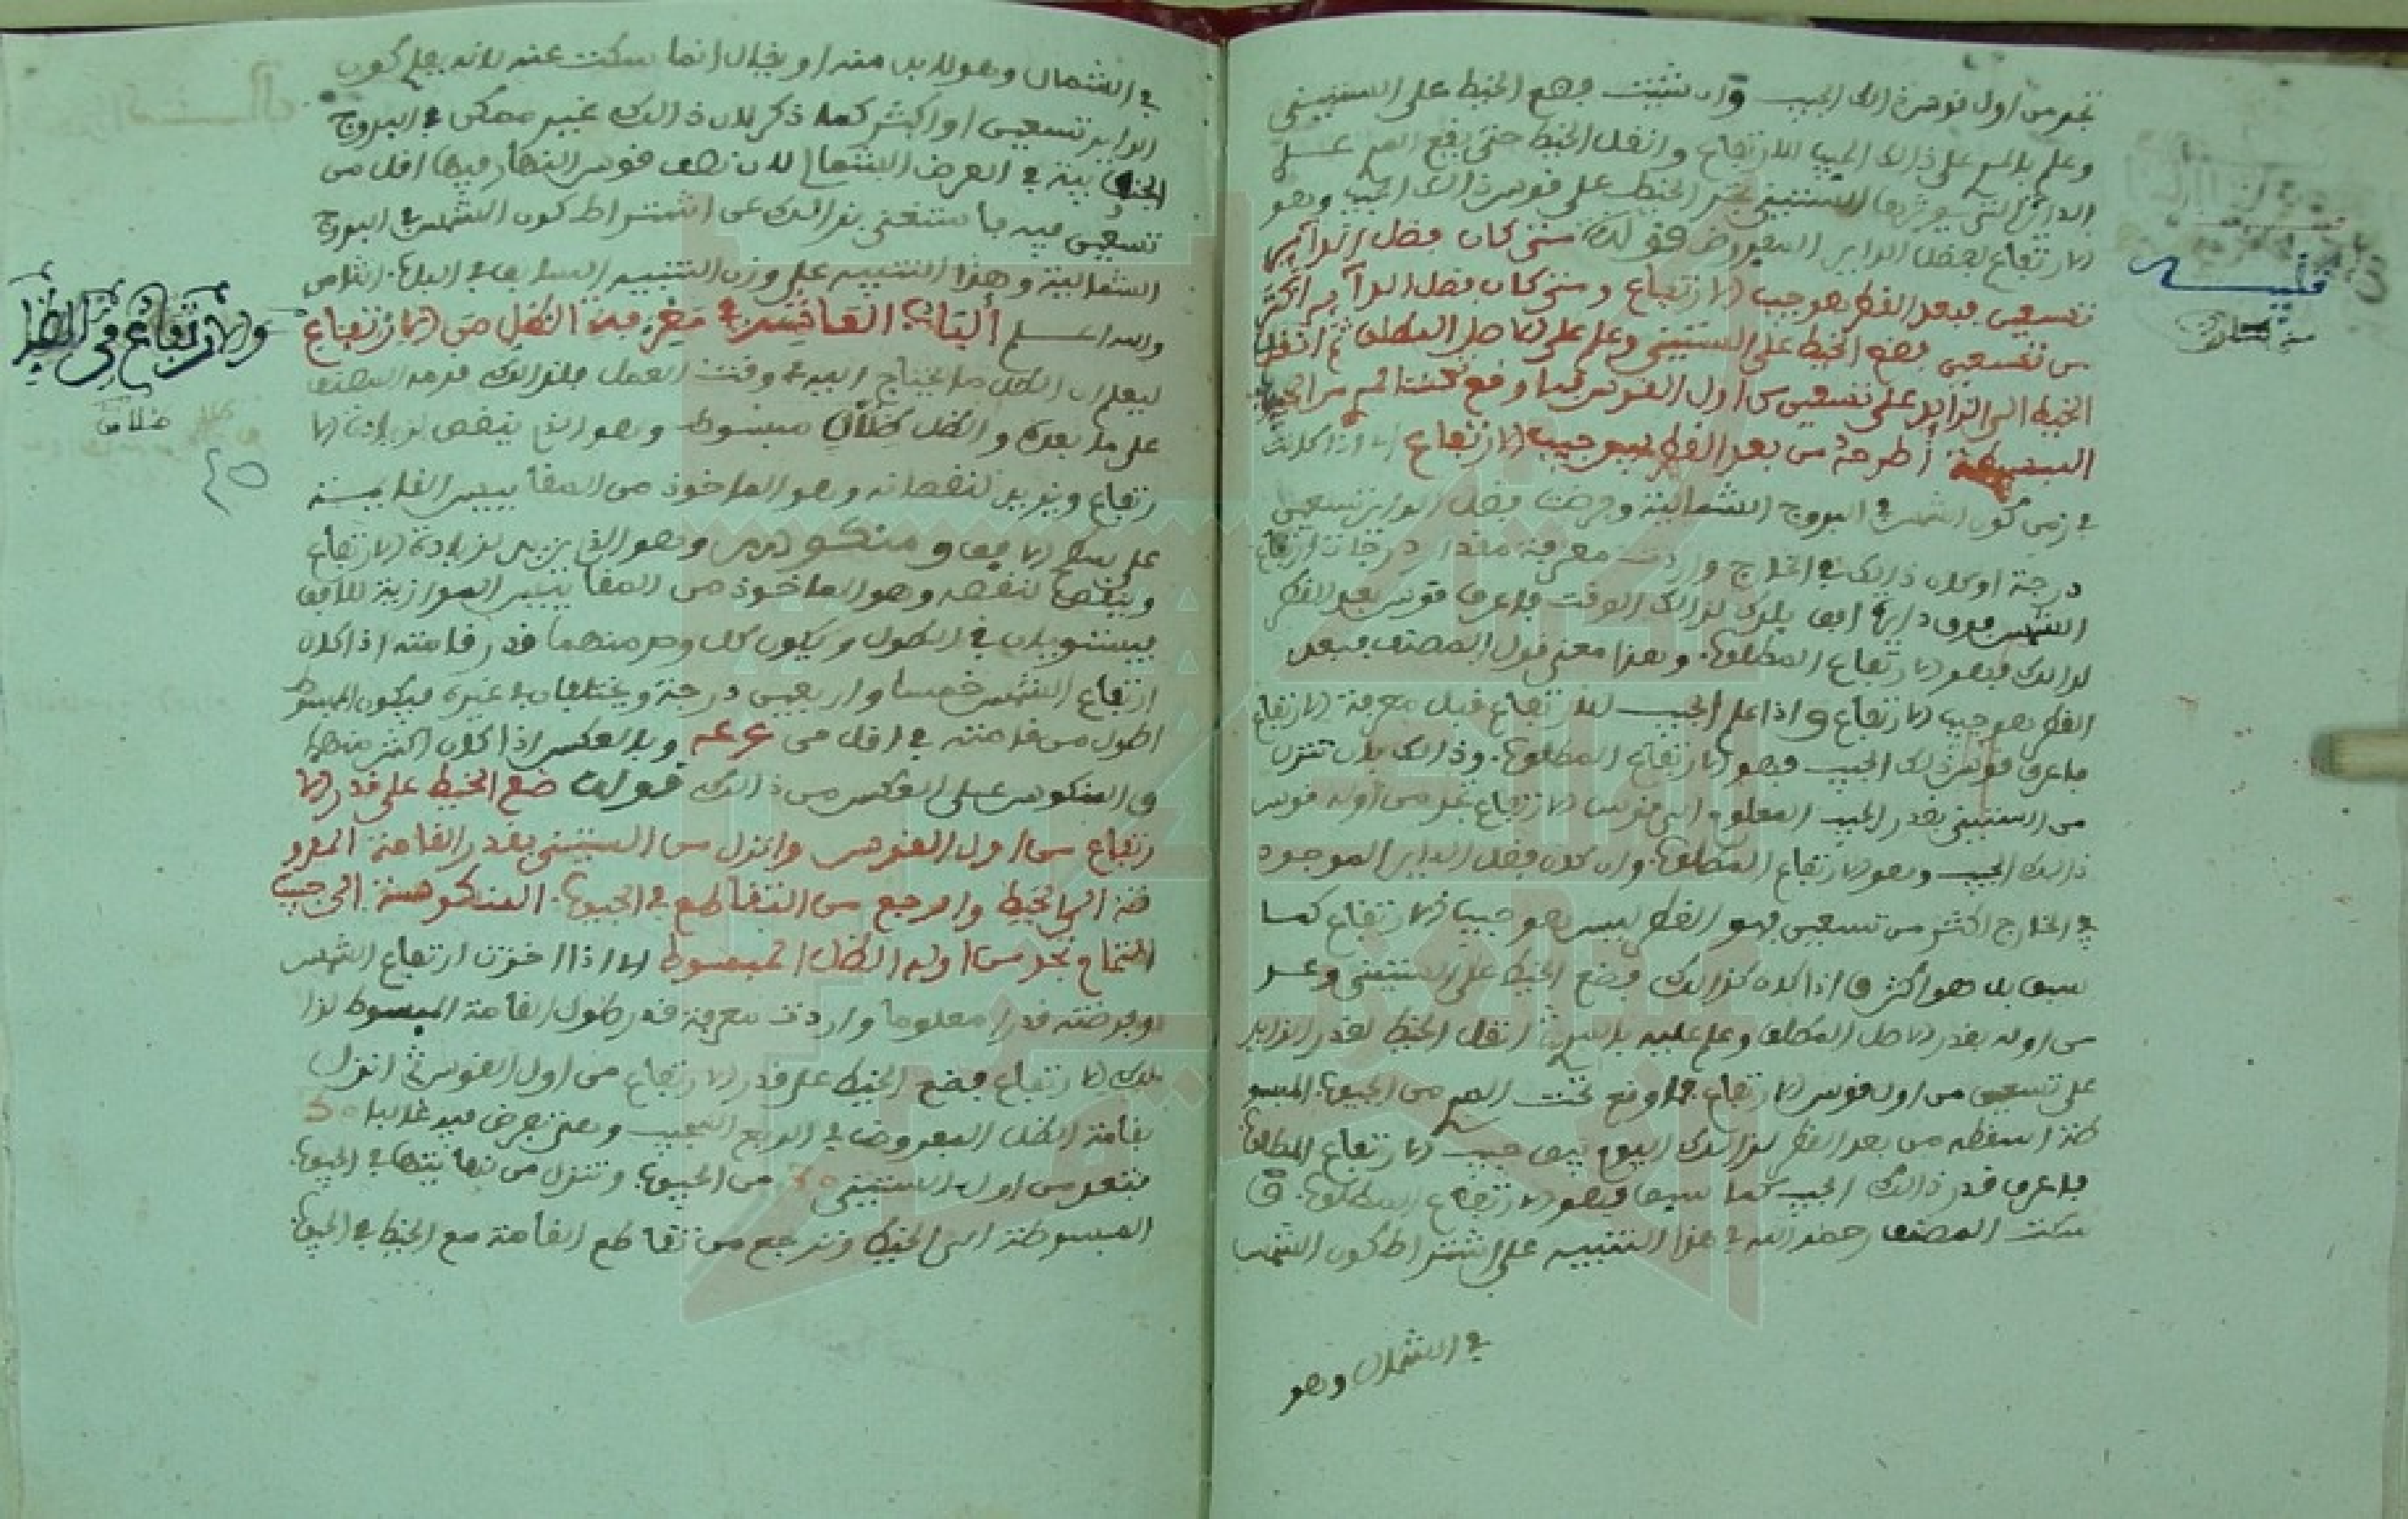 تجد من اول قوسه ذلك الجيب وان شئت فضع الخيط على الستيني
وعلم بالمري على ذلك الجيب للارتفاع وانقل الخيط حتى يقع المري على
الستيني تجد الخيط على قوس ذلك الجيب وهو
الارتفاع لفضل الداير المفروض قوله متى كان فضل الداير
تسعين فبعد القطر هو جيب الارتفاع ومتى كان فضل الداير اكثر
من تسعين فضع الخيط على الستيني وعلم على الاصل المطلق ثم انقل
الخيط الى الزايد على تسعين من اول القوس فما وقع تحت المري من الجيوب
المبسوطة أطرحه من بعد القطر يبق جيب الارتفاع اي اذا كانت
في زمن كون الشمس في البروج الشمالية وفرضت فضل الداير تسعين
درجة او كان ذلك في الخارج واردت معرفة مقدار درجات ارتفاع
الشمس فوق دايرة افق بلدك لذلك الوقت فاعرف قوس بعد القطر
لذلك فهو الارتفاع المطلوب. وهذا معنى قول المصنف فبعد
القطر هو جيب الارتفاع واذا علم الجيب للارتفاع قبل معرفة الارتفاع
فاعرف قوس ذلك الجيب فهو الارتفاع المطلوب. وذلك بان تنزل
من الستيني بقدر الجيب المعلوم الى قوس الارتفاع تجد من أوله قوس
ذلك الجيب وهو الارتفاع المطلوب. وان كان فضل الداير الموجود
في الخارج اكثر من تسعين فبعد القطر ليس هو جيب الارتفاع كما
سبق بل هو اكثر و اذا كان كذلك فضع الخيط على الستيني وعد
من اوله بقدر الاصل المطلق وعلم عليه بالمري ثم انقل الخيط لقدر الزايد
على تسعين من اول قوس الارتفاع فما وقع تحت المري من الجيوب المبسو
طة اسقطه من بعد القطر لذلك اليوم يبق جيب الارتفاع المطلوب
فاعرف قدر ذلك الجيب كما سبق فهو الارتفاع المطلوب. و
سكت المصنف رحمه الله في هذا التنبيه على اشتراط كون الشمس
في الشمال وهو
في الشمال وهو لابد منه او يقال انما سكت عنه لانه يعلم كون
الداير تسعين او اكثر كما ذكر لان ذلك غير ممكن في البروج
الجنوبية في العرض الشمالي لان نصف قوس النهار فيها اقل من
تسعين فيه فاستغنى بذلك عن اشتراط كون الشمس في البروج
الشمالية وهذا التنبيه على وزن التنبيه السابق في الباب. الثامن
والله اعلم ألباب العاشر في معرفة الظل من الارتفاع
والارتفاع من الظل
ليعلم ان الظل ما يحتاج اليه في وقت العمل فلذلك قدمه المصنف
على ما بعده والظل ظلان مبسوط وهو الذي ينقص لزيادة الا
رتفاع ويزيد لنقصانه وهو الماخوذ من المقاييس القايمة
على بسط الافق ومنكوس وهو الذي يزيد لزيادة الارتفاع
وينقص لنقصه وهو الماخوذ من المقاييس الموازية للافق
فيستويان في الطول ويكون كل وحد منهما قدر قامته اذا كان
ارتفاع الشمس خمسا واربعين درجة ويختلفان في غيره فيكون المبسوط
اطول من قامته في اقل من وبالعكس اذا كان اكثر منها
و المنكوس على العكس من ذلك قوله ضع الخيط على قدر الا
رتفاع من اول القوس وانزل من الستيني بقدر القامة المفرو
ضة الى الخيط وارجع من التقاطع في الجيوب. المنكوسة الى جيب
التمام تجد من اوله الظل المبسوط اي اذا اخذت ارتفاع الشمس
او فرضته قدرا معلوما واردت معرفة قدر طول القامة المبسوط لذا
لك الارتفاع فضع الخيط على قدر الارتفاع من اول القوس ثم انزل
بقامة الظل المفروض في الربع المجيب وهي تفرض فيه غالبا
فتعد من اول الستيني من الجيوب. وتنزل من نهايتها في الجيوب.
المبسوطة الى الخيط وترجع من تقاطع القامة مع الخيط في الجيوب.